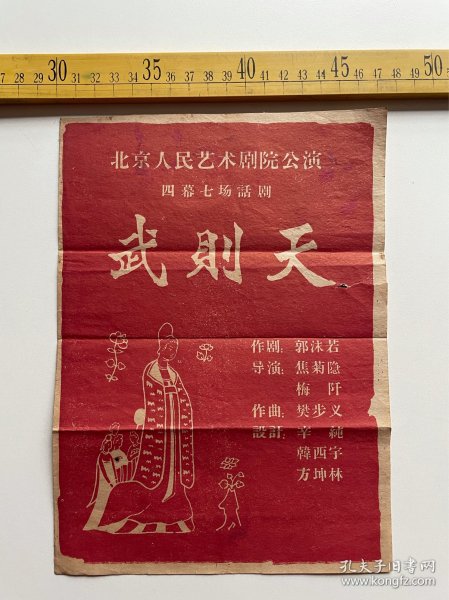 27 28 29 30 31 32 33 34 35 36 37 38 39 40 41 42 43 44 45 46 47 48 49 50
北京人民艺术剧院公演
四幕七场話剧
武則天
作剧：郭沫若
导演：焦菊隐
梅阡
作曲：樊步义
設計：辛純
韓西宇
方堃林
孔夫子旧书网
www.kongfz.com